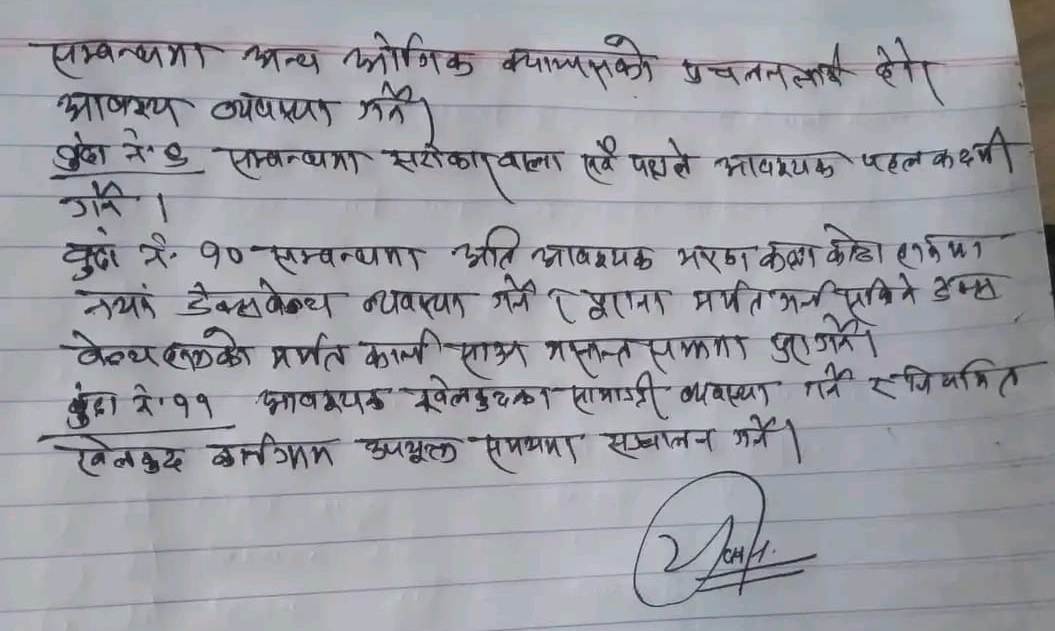 सम्बन्धमा अन्य आंगिक क्याम्पसको प्रचलनलाई हेरी
आवश्य व्यवस्था गर्ने।
बुंदा नं. ९ सम्बन्धमा सरोकारवाला सबै पक्षले आवश्यक पहलकदमी
गर्ने ।
बुंदा नं. १० सम्बन्धमा अति आवश्यक भएका कक्षा कोठा हरुमा
नयां डेक्सबेन्च व्यवस्था गर्ने र पुराना मर्मत गर्न सकिने डेक्स
बेन्च हरुको मर्मत कार्य माघ मसान्त सम्ममा पुरा गर्ने।
बुंदा नं. ११ आवश्यक खेलकुदका सामाग्री व्यवस्था गर्ने र नियमित
खेलकुद कार्यक्रम उपयुक्त समयमा सञ्चालन गर्ने।